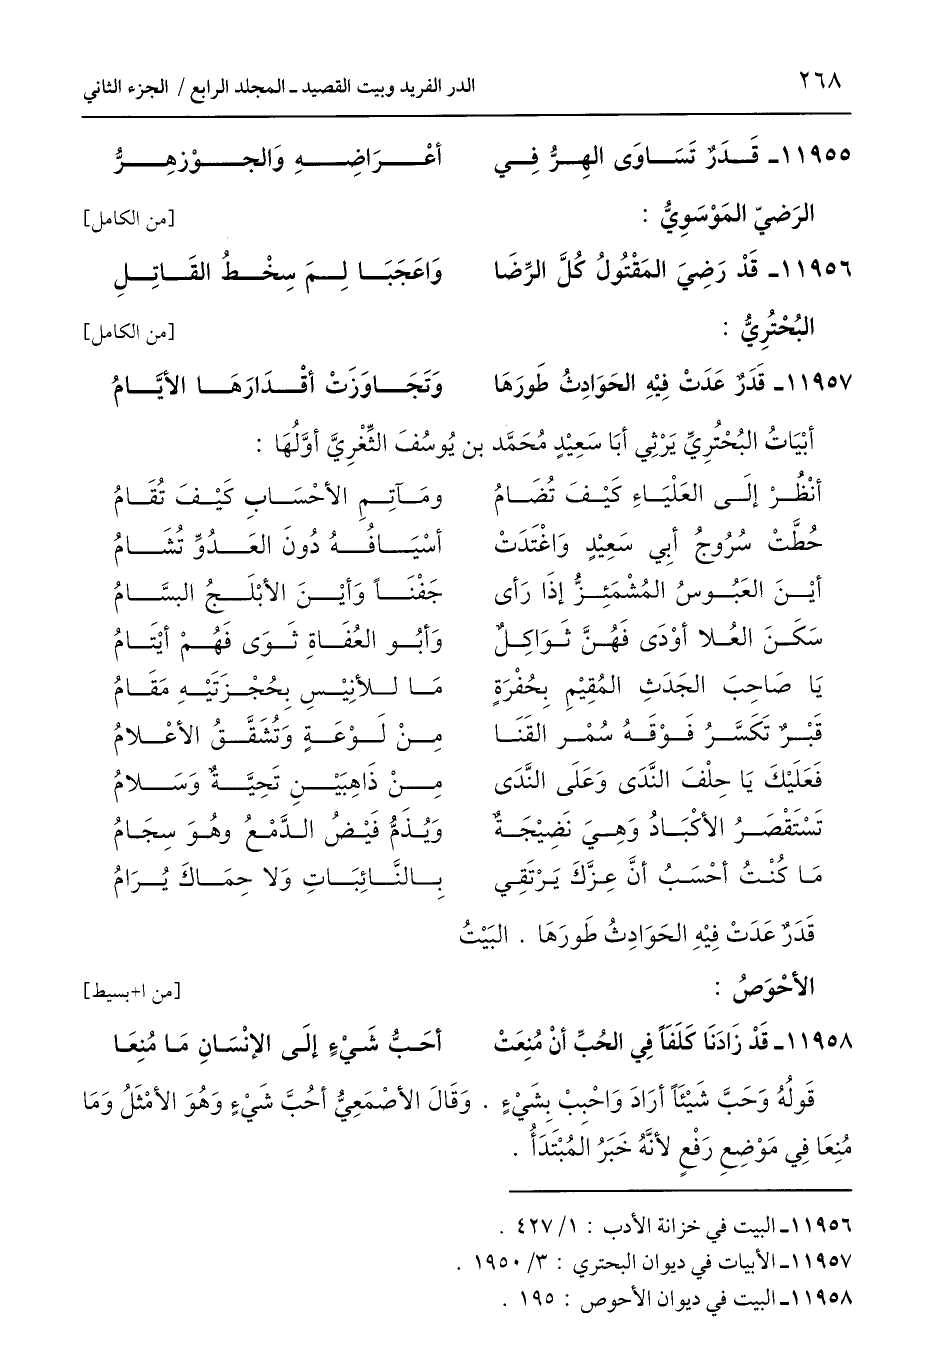 ٢٦٨ الدر الفريد وبيت القصيد ـ المجلد الرابع / الجزء الثاني
١١٩٥٥ـ قَدَرٌ تَسَاوَى الهِرُّ فِي أعْرَاضِهِ وَالجَوْزهِرُّ
الرَضيّ المَوْسَوِيُّ : [من الكامل]
١١٩٥٦ـ قَدْ رَضِيَ المَقْتُولُ كُلَّ الرِّضَا وَاعَجَبَا لِمَ سِخْطُ القَاتِلِ
البُحْتُرِيُّ : [من الكامل]
١١٩٥٧ـ قَدَرٌ عَدَتْ فِيْهِ الحَوَادِثُ طَورَهَا وَتَجَاوَزَتْ أقْدَارَهَا الأيَّامُ
أبْيَاتُ البُحْتُرِيِّ يَرْثِي أبَا سَعِيْدٍ مُحَمَّد بن يُوسُفَ الثِّغْرِيَّ أوَّلُهَا :
أنْظُرْ إلَى العَلْيَاءِ كَيْفَ تُضَامُ ومَآتِمِ الأحْسَابِ كَيْفَ تُقَامُ
حُطَّتْ سُرُوجُ أبِي سَعِيْدٍ وَاغْتَدَتْ أسْيَافُهُ دُونَ العَدُوِّ تُشَامُ
أيْنَ العَبُوسُ المُشْمَئِزُّ إذَا رَأى جَفْنَاً وَأيْنَ الأبْلَجُ البسَّامُ
سَكَنَ العُلا أوْدَى فَهُنَّ ثَوَاكِلٌ وَأبُو العُفَاةِ ثَوَى فَهُمْ أيْتَامُ
يَا صَاحِبَ الجَدَثِ المُقِيْمِ بِحُفْرَةٍ مَا لِلأنِيْسِ بِحُجْزَتَيْهِ مَقَامُ
قَبْرٌ تَكَسَّرُ فَوْقَهُ سُمْرِ القَنَا مِنْ لَوْعَةٍ وَتُشَقَّقُ الأعْلامُ
فَعَلَيْكَ يَا حِلْفَ النَّدَى وَعَلَى النَّدَى مِنْ ذَاهِبَيْنِ تَحِيَّةٌ وَسَلامُ
تَسْتَقْصَرُ الأكْبَادُ وَهِيَ نَضِيْجَةٌ وَيُذَمُّ فَيْضُ الدَّمْعِ وهُوَ سِجَامُ
مَا كُنْتُ أحْسَبُ أنَّ عِزَّكَ يَرْتَقِي بِالنَّائِبَاتِ وَلا حِمَاكَ يُرَامُ
قَدَرٌ عَدَتْ فِيْهِ الحَوَادِثُ طَورَهَا . البَيْتُ
الأحْوَصُ : [من ا+بسيط]
١١٩٥٨ـ قَدْ زَادَنَا كَلَفَاً فِي الحُبِّ أنْ مُنِعَتْ أحَبُّ شَيْءٍ إلَى الإنْسَانِ مَا مُنِعَا
قَولُهُ وَحَبَّ شَيْئَاً أرَادَ وَاحْبِبْ بِشَيْءٍ . وَقَالَ الأصْمَعِيُّ أحُبَّ شَيْءٍ وَهُوَ الأمْثَلُ وَمَا
مُنِعَا فِي مَوْضِعِ رَفْعٍ لأنَّهُ خَبَرُ المُبْتَدَأُ .
١١٩٥٦ـ البيت في خزانة الأدب : ١/ ٤٢٧ .
١١٩٥٧ـ الأبيات في ديوان البحتري : ٣/ ١٩٥٠ .
١١٩٥٨ـ البيت في ديوان الأحوص : ١٩٥ .